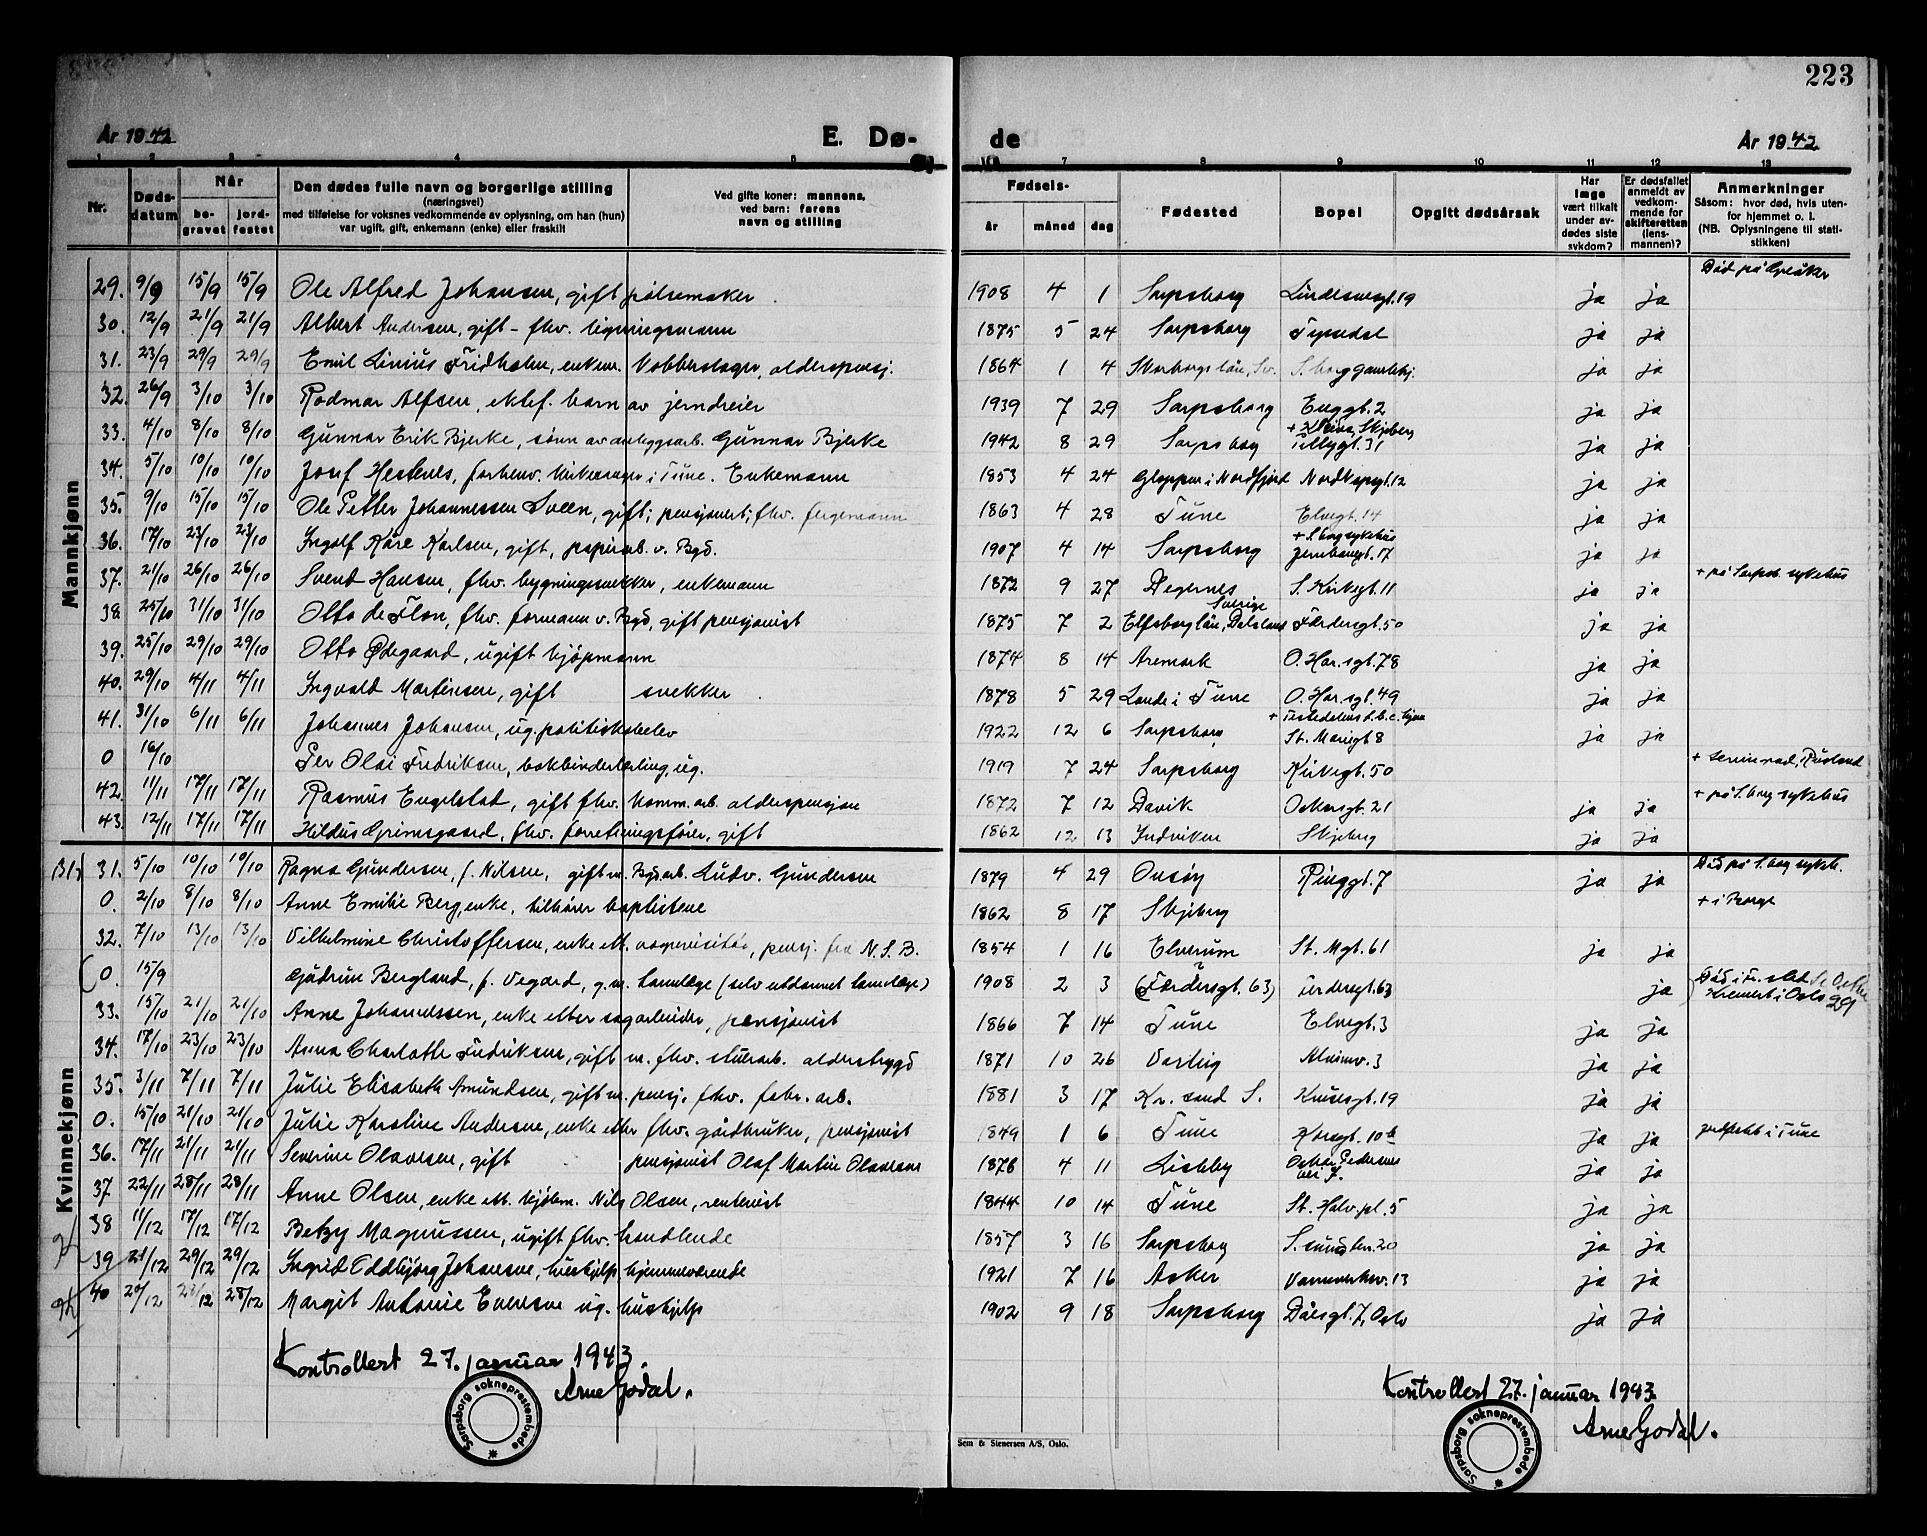 223
År 1942 E. Dø- de År 1942
1 2 3 4 5 6 7 8 9 10 11 12 13
Nr. Døds-datum Når be-gravet jord-festet Den dødes fulle navn og borgerlige stilling (næringsvei) med tilføielse for voksnes vedkommende av oplysning, om han (hun) var ugift, gift, enkemann (enke) eller fraskilt Ved gifte koner: mannens, ved barn: farens navn og stilling Fødsels- år måned dag Fødested Bopel Opgitt dødsårsak Har læge vært tilkalt under av-dødes siste sykdom? Er dødsfallet anmeldt av vedkom-mende for skifteretten (lens-mannen)? Anmerkninger Såsom: hvor død, hvis uten-for hjemmet o. l. (NB. Oplysningene til stati-stikken)
Mannkjønn
29. 9/9 15/9 15/9 Ole Alfred Johansen, gift pølsemaker. 1908 4 1 Sarpsborg 19 ja ja Død på Greåker
30. 12/9 21/9 21/9 Albert Andersen, gift - fhv. ligningsmann 1875 5 24 Sarpsborg ja ja
31. 23/9 29/9 29/9 Emil Linius Fridholm, enkem. alderspensj. 1864 1 4 Skarborgs län, Sv. S.borg gamlehj. ja ja
32. 26/9 3/10 3/10 Rodmar Alfsen, ektef. barn av jerndreier 1939 7 29 Sarpsborg Enggt. 2 ja ja
33. 4/10 8/10 8/10 Gunnar Erik Bjerke, sønn av anleggsarb. Gunnar Bjerke 1942 8 29 Sarpsborg Skjeberg 31 ja ja
34. 5/10 10/10 10/10 Josef Hestenes, forhenv. kirkesanger i Tune. Enkemann 1853 4 24 Gloppen i Nordfjord Nordkapgt. 12 ja ja
35. 9/10 15/10 15/10 Ole Petter Johannessen Sveen, gift; pensjonert; fhv. fergemann 1863 4 28 Tune Elvegt. 14 ja ja
36. 17/10 23/10 23/10 Ingolf Kåre Karlsen, gift, papirarb. v. Bgd. 1907 4 14 Sarpsborg + S.borg sykehus Jernbanegt. 17 ja ja
37. 21/10 26/10 26/10 Svend Hansen, fhv. bygningssnekker, enkemann 1872 9 27 Degernes S. Kirkegt. 11 ja ja + på Sarpsb. sykehus
38 25/10 31/10 31/10 Otto de Flon, fhv. formann v. Bgd, gift pensjonist 1875 7 2 Elfsborg län, Dalsland Sverige Færdersgt. 50 ja ja
39. 25/10 29/10 29/10 Otto Ødegaard, ugift kjøpmann 1874 8 14 Aremark O. Har.sgt. 78 ja ja
40. 29/10 4/11 4/11 Ingvald Martinsen, gift snekker. 1878 5 29 Lande i Tune O. Har.sgt. 49 ja ja
41. 31/10 6/11 6/11 Johannes Johansen, ug. politiskoleelev 1922 12 6 Sarpsborg St. Mariegt 8 ja ja
0 16/10 Per Olai Fredriksen, bokbinderlærling, ug. 1919 7 24 Sarpsborg Kirkegt. 50 + Leningrad, Russland
42. 11/11 17/11 17/11 Rasmus Engelstad, gift fhv. komm.arb. alderspensjon 1872 7 12 Davik Oskarsgt. 21 ja ja + på S.borg sykehus
43. 12/11 17/11 17/11 Hildus Grimsgaard, fhv. forretningsfører, gift 1862 12 13 Indviken Skjeberg ja ja
Kvinnekjønn
31. 5/10 10/10 10/10 Ragna Gundersen, f. Nilsen, gift m. Bgd.arb. Ludv. Gundersen 1879 4 29 Onsøy Ringgt. 7 ja ja Død på S.borg sykeh.
0. 2/10 8/10 8/10 Anne Emilie Berg, enke, tilhører baptistene 1862 8 17 Skjeberg + i Borge
32. 7/10 13/10 13/10 Vilhelmine Christoffersen, enke ett. vognvisitør, pensj. fra N.S.B. 1854 1 16 Elverum St. Mgt. 61 ja ja
0. 15/9 Gudrun Bergland, f. Vegard, g.m. tannlæge (selv utdannet tannlæge) 1908 2 3 (Færdersgt. 63) Færdersgt. 63 ja Død i Fr.stad Kremert i Oslo
33. 15/10 21/10 21/10 Anne Johannessen, enke etter sagarbeider, pensjonist 1866 7 14 Tune Elvegt. 3 ja ja
34. 17/10 23/10 23/10 Anna Charlotte Fredriksen, gift m. fhv. alderstrygd 1871 10 26 Varteig 3 ja ja
35. 3/11 7/11 7/11 Julie Elisabeth Amundsen, gift m. pensj. fhv. fabr. arb. 1881 3 17 Kr.sand S. Krusesgt. 19 ja ja
0. 15/10 21/10 21/10 Julie Karoline Andersen, enke etter fhv. gårdbruker, pensjonist 1849 1 6 Tune Korsgt. 10b ja ja jordfestet i Tune
36. 17/11 21/11 21/11 Severine Olavesen, gift pensjonist Olaf Martin Olavesen 1876 4 11 Lisleby Oskar Pedersens vei ja ja
37 22/11 28/11 28/11 Anne Olsen, enke ett. kjøbm. Nils Olsen, rentenist 1844 10 14 Tune St. Halv.pl. 5 ja ja
38 11/12 17/12 17/12 Betzy Magnussen, ugift fhv. handlende 1857 3 16 Sarpsborg 20 ja ja
39 21/12 29/12 29/12 Ingrid Oddbjörg Johansen, hushjelp hjemmeværende 1921 7 16 Asker Vannverksv. 13 ja ja
40 20/12 28/12 Margit Antonie Evensen ug. hushjelp 1902 9 18 Sarpsborg Dalsgt. 7, Oslo ja ja
Kontrollert 27. januar 1943.
Arne Godal.
Sarpsborg sokneprestembede
Kontrollert 27. januar 1943.
Arne Godal.
Sarpsborg sokneprestembede
Sem & Stenersen A/S, Oslo.